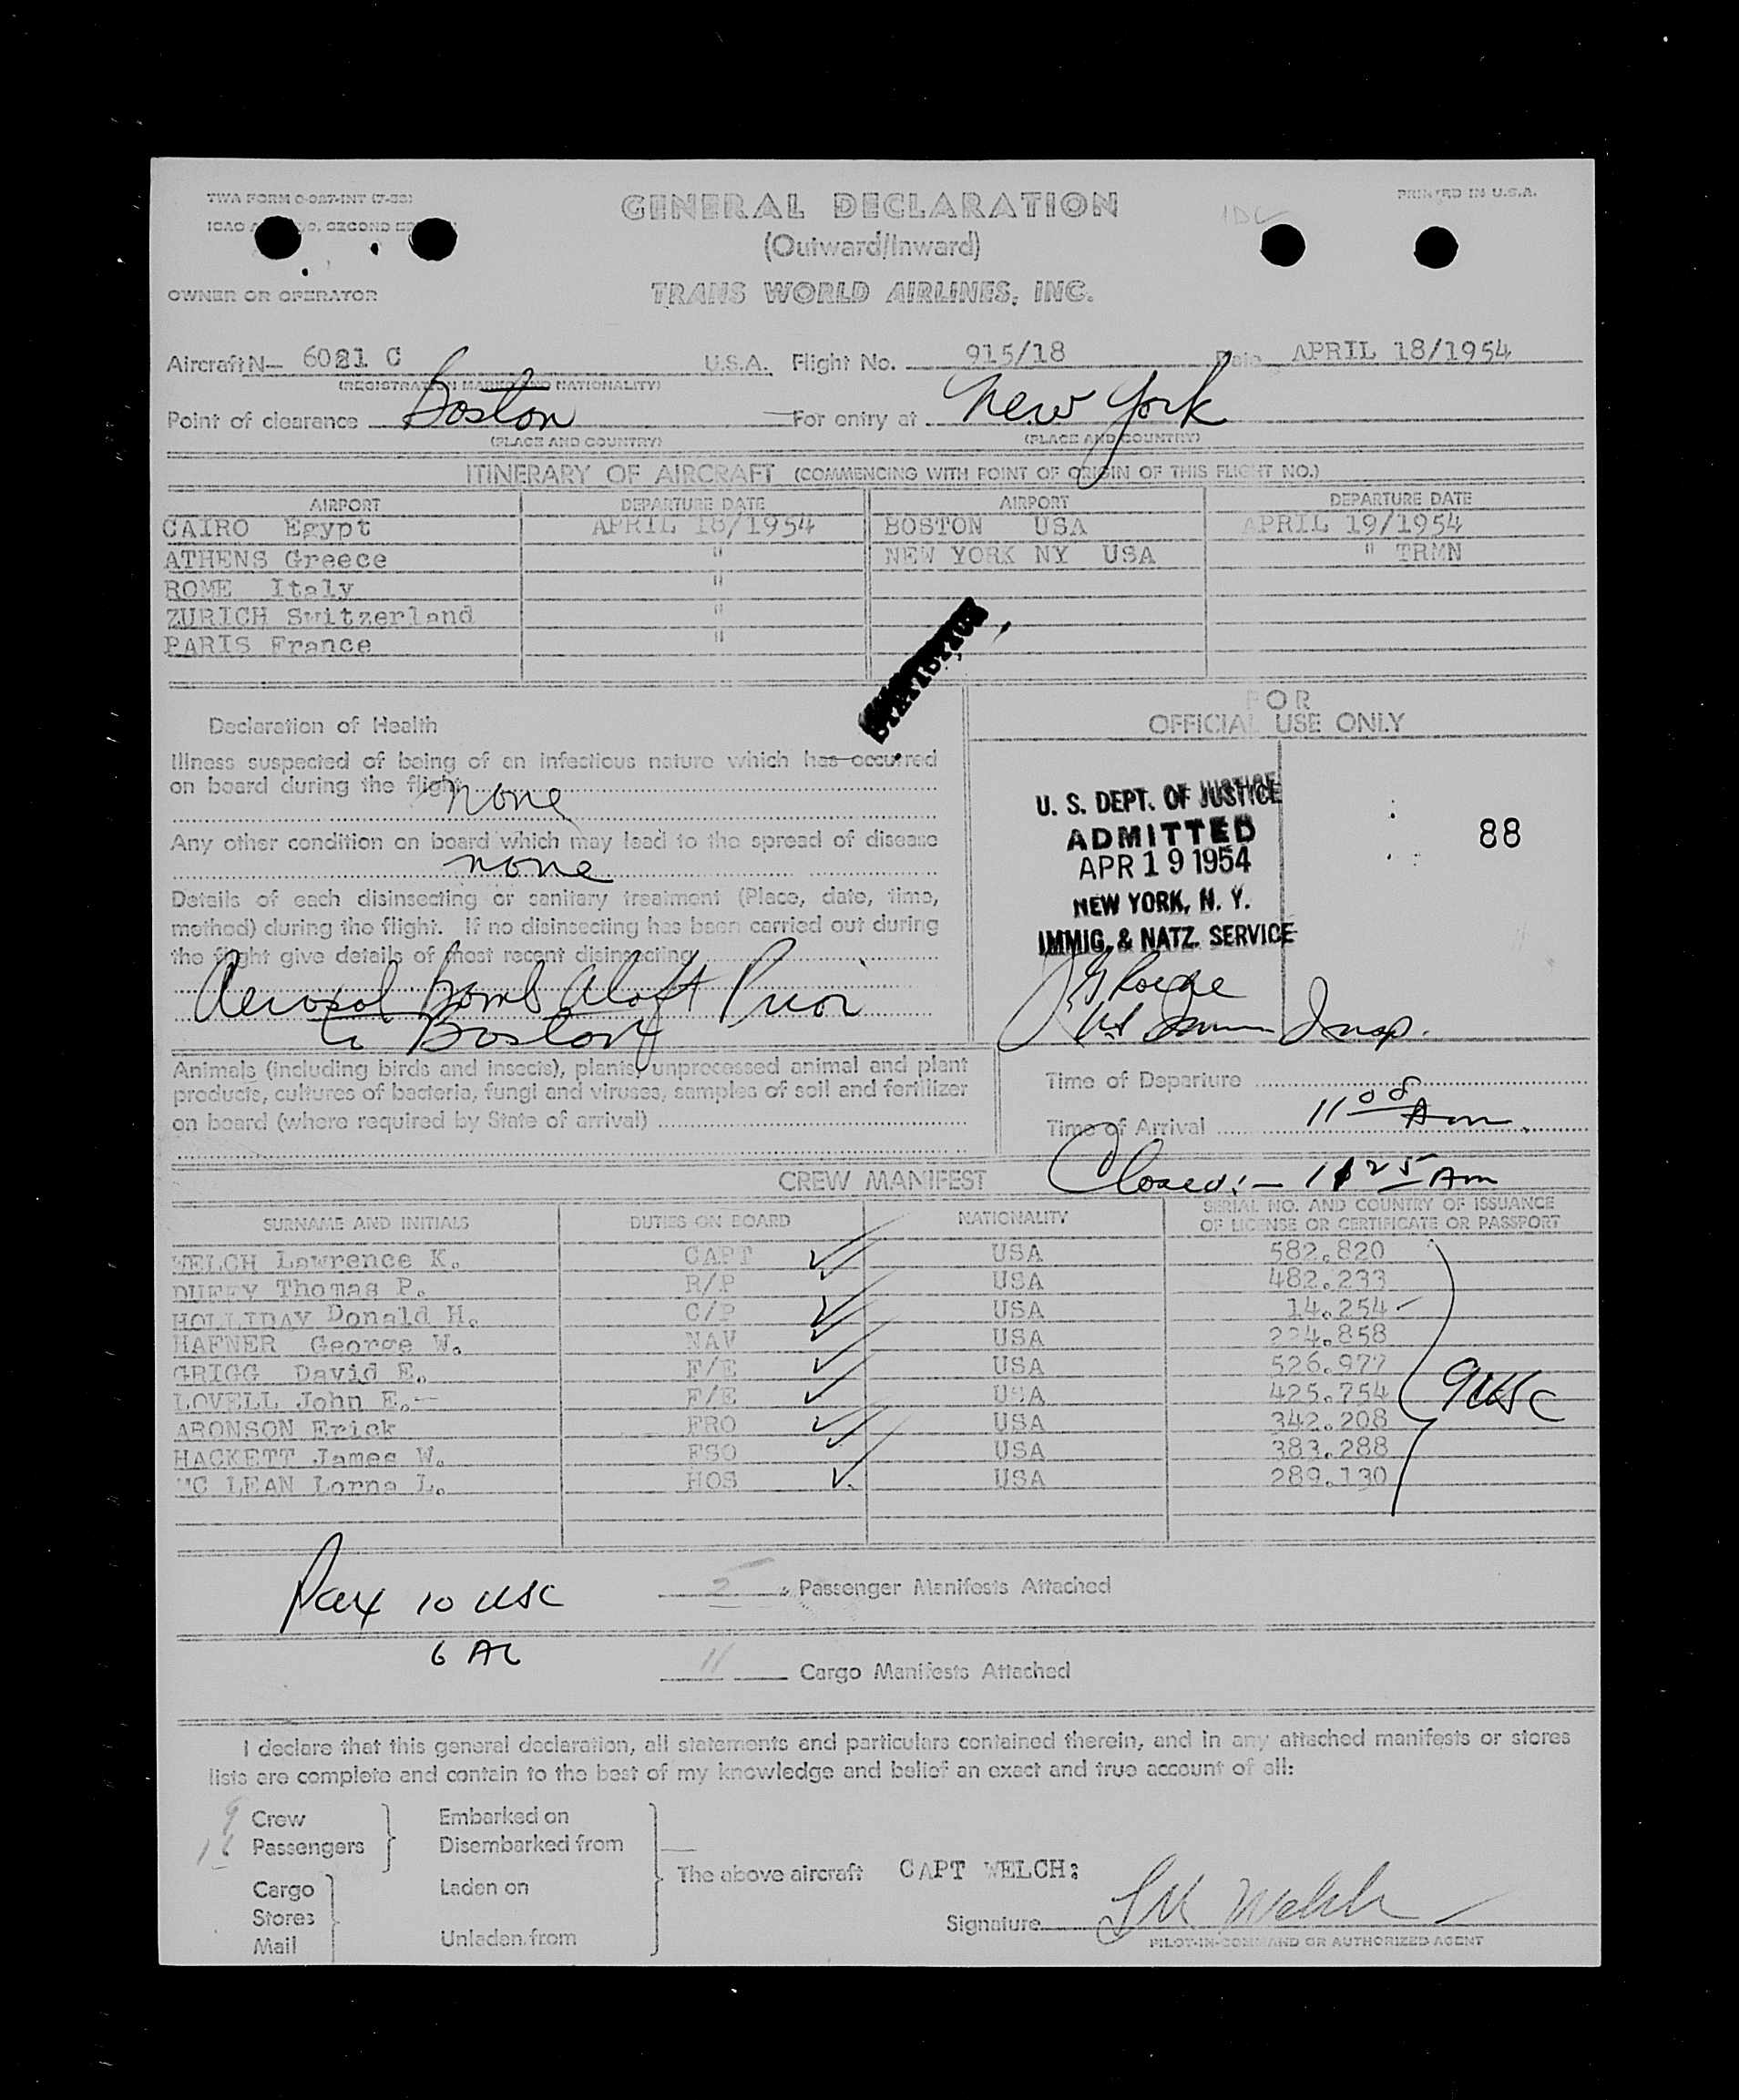 TWA FORM O-027-INT (7-53)
GENERAL DECLARATION
PRINTED IN U.S.A.
ICAO SECOND
(Outward/Inward)
OWNER OR OPERATOR
TRANS WORLD AIRLINES, INC.
Aircraft N— 6021 C U.S.A. Flight No. 915/18 Date APRIL 18/1954
(REGISTRATION MARKS AND NATIONALITY)
Point of clearance Boston For entry at New York
(PLACE AND COUNTRY) (PLACE AND COUNTRY)
ITINERARY OF AIRCRAFT (COMMENCING WITH POINT OF ORIGIN OF THIS FLIGHT NO.)
AIRPORT DEPARTURE DATE AIRPORT DEPARTURE DATE
CAIRO Egypt APRIL 18/1954 BOSTON USA APRIL 19/1954
ATHENS Greece " NEW YORK NY USA " TRMN
ROME Italy "
ZURICH Switzerland "
PARIS France "
FOR
OFFICIAL USE ONLY
Declaration of Health
Illness suspected of being of an infectious nature which has occurred
on board during the flight
none
Any other condition on board which may lead to the spread of disease
none
Details of each disinsecting or sanitary treatment (Place, date, time,
method) during the flight. If no disinsecting has been carried out during
the flight give details of most recent disinsecting
Aerosol Bomb Aloft Prior
to Boston
U. S. DEPT. OF JUSTICE
ADMITTED
APR 19 1954
NEW YORK, N. Y.
IMMIG. & NATZ. SERVICE
88
Insp.
Animals (including birds and insects), plants, unprocessed animal and plant
products, cultures of bacteria, fungi and viruses, samples of soil and fertilizer
on board (where required by State of arrival)
Time of Departure
Time of Arrival 11 08 Am
Closed:- 11 25 Am
CREW MANIFEST
SURNAME AND INITIALS DUTIES ON BOARD NATIONALITY SERIAL NO. AND COUNTRY OF ISSUANCE
OF LICENSE OR CERTIFICATE OR PASSPORT
WELCH Lawrence K. CAPT USA 582.820
DUFFY Thomas P. R/P USA 482.233
HOLLIDAY Donald H. C/P USA 14.254
HAFNER George W. NAV USA 224.858
GRIGG David E. F/E USA 526.977
LOVELL John E. F/E USA 425.754
ARONSON Erick FRO USA 342.208
HACKETT James W. FSO USA 383.288
MC LEAN Lorna L. HOS USA 289.130
9 USC
Pax 10 USC
5 Passenger Manifests Attached
6 AL
11 Cargo Manifests Attached
I declare that this general declaration, all statements and particulars contained therein, and in any attached manifests or stores
lists are complete and contain to the best of my knowledge and belief an exact and true account of all:
9 Crew Embarked on
16 Passengers Disembarked from
The above aircraft CAPT WELCH:
Cargo Laden on
Stores
Mail Unladen from
Signature L K Welch
PILOT-IN-COMMAND OR AUTHORIZED AGENT